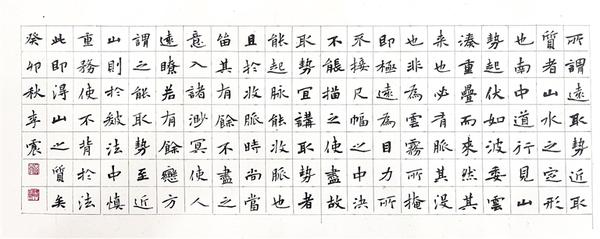 所謂遠取勢近取
質者山水之定形
也南中道行見山
勢起伏如波委雲
湊重疊而來然其
来也必有脈其没
也非為雲霧所掩
即極遠為目力所
不接尺幅之中決
不能描之使盡故
取勢宜講取勢者
能起脈能收脈也
且於收脈時尚當
留其有餘不盡之
意入諸渺冥使人
遠瞻若有餘戀方
謂之能取勢至近
山則於皴法中慎
重務使不背於法
此即得山之質矣
癸卯秋李震